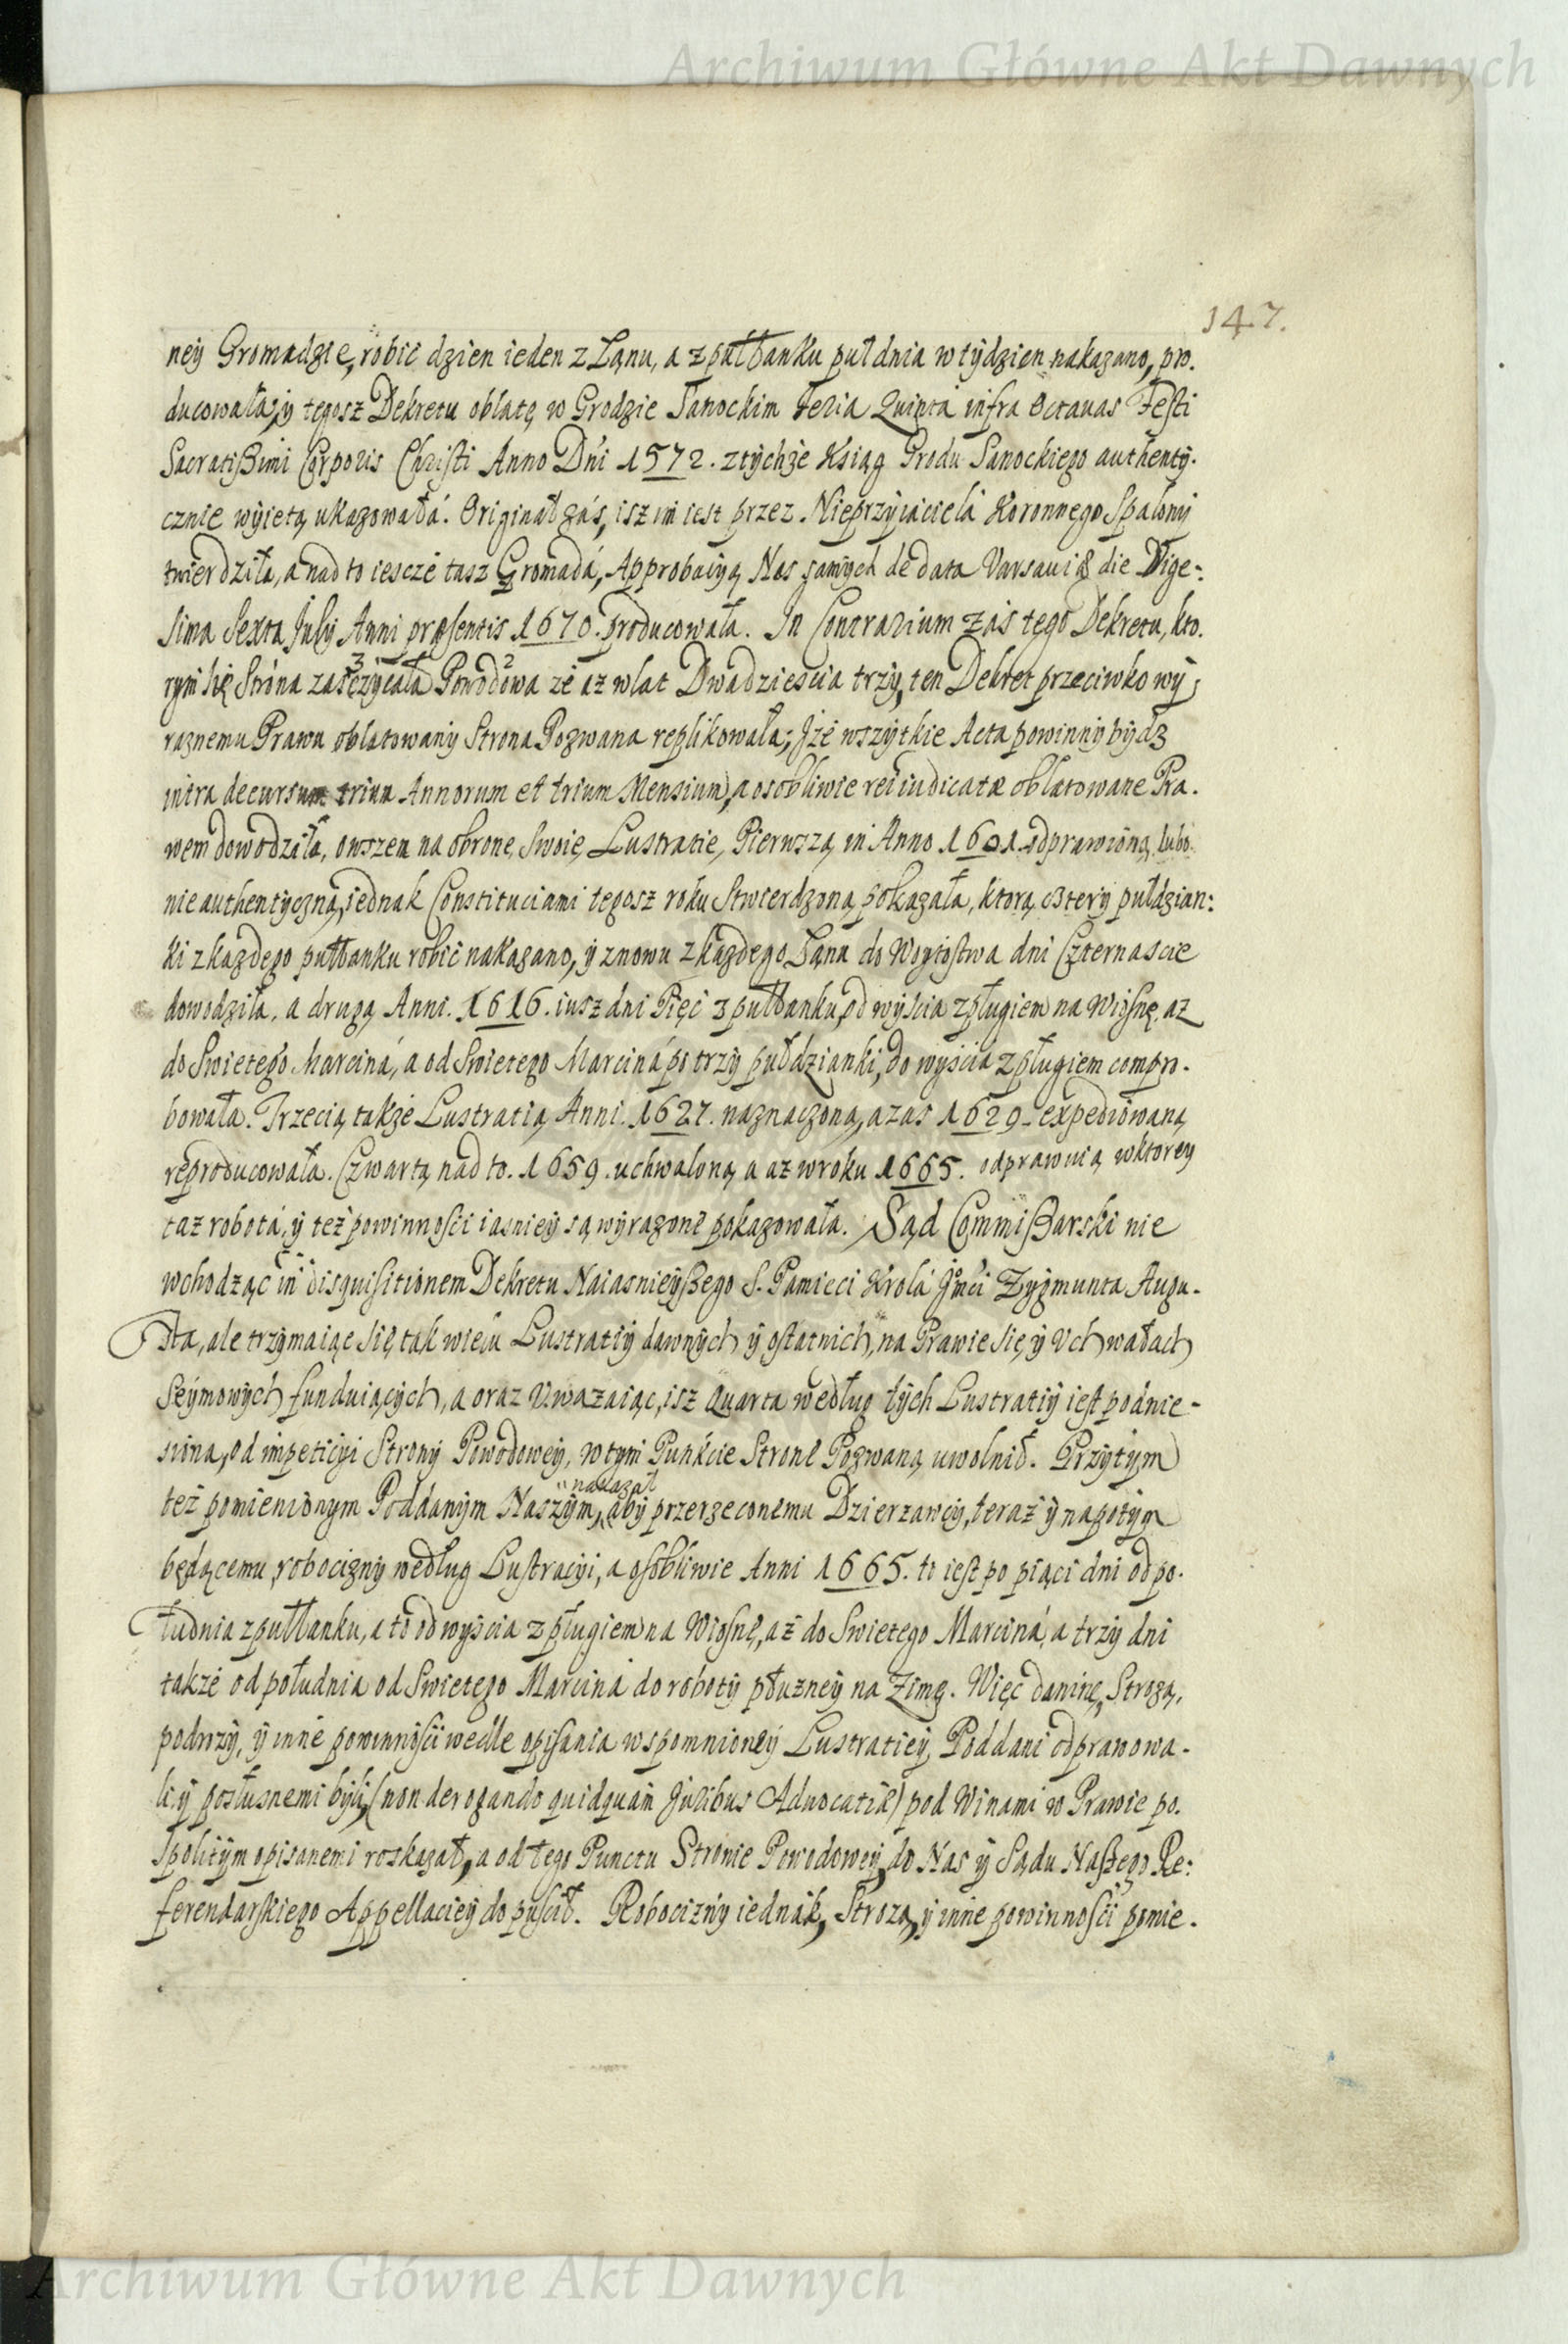 Archiwum Główne Akt Dawnych
147.
ney Gromadzie, robić dzien ieden z Łanu, a z pułłanku puł dnia w tydzien nakazano, pro-
ducowała, y tegosz Dekretu oblatę w Grodzie Sanockim Feria Quinta infra Octauas Festi
Sacratißimi Corporis Christi Anno Dńi 1572. z tychże Ksiąg Grodu Sanockiego authenty-
cznie wyietą ukazowałá. Originał zás, isz im iest przez Nieprzyiacielá Koronnego Spalony
twierdziła, a nad to iescze tasz Gromadá, Approbacyą Nas samych de data Varsauiæ die Vige-
sima Sexta July Anni præsentis 1670. producowała. In Contrarium zás tego Dekretu, kto-
rym się Strona zasczycała 3 Powodowa 2 ze az w lat Dwadziescia trzy, ten Dekret przeciwko wy-
raznemu Prawu oblatowany Strona Pozwana replikowała; Jże wszytkie Acta powinny bydz
intra decursum trium Annorum et trium Mensium, a osobliwie rei iudicatæ oblatowane Pra-
wem dowodziła, owszem na obronę Swoię Lustratie, Pierwszą in Anno 1601. odprawioną, lubo
nie authentyczną, iednak Constituciami tegosz roku Stwierdzoną pokazała, ktorą cztery pułdzian-
ki z kazdego pułłanku robić nakazano, y znowu z kazdego Łanu do Woytostwa dni Czternascie
dowodziła, a drugą Anni. 1616. iusz dni Pięć z pułłanku, od wyscia z pługiem na Wiosnę, az
do Swietego Marciná, a od Swietego Marciná po trzy pułdzianki, do wyścia z pługiem compro-
bowała. Trzecią także Lustratią Anni. 1627. naznaczoną, a zas 1629. expediowaną
reproducowała. Czwartą nad to. 1659. uchwaloną a az w roku 1665. odprawuią w ktorey
taz robotá, y też powinnosci iasniey są wyrazone pokazowała. Sąd Commißarski nie
wchodząc in disquisitionem Dekretu Naiasnieyßego S. Pamieci Krolá Jmći Zygmunta Augu-
sta, ale trzymaiąc się tak wielu Lustratiy dawnych y ostatnich, na Prawie się y Uchwałach
Seymowych funduiących, a oraz Uwazaiąc, isz Quarta według tych Lustratiy iest podnie-
siona, od impeticyi Strony Powodowey, w tym Punkcie Stronę Pozwaną uwolnił. Przytym
też pomienionym Poddanym Naszym, nakazał aby przerzeconemu Dzierzawcy, teraz y napotym
będącemu, robocizny według Lustracyi, a osobliwie Anni 1665. to iest po piąci dni od po-
łudnia z pułłanku, a to od wyscia z pługiem na Wiosnę, aż do Swietego Marciná, a trzy dni
takze od południa od Swietego Marciná do roboty płuzney na Zimę. Więc daninę, Strozą,
podrozy, y inne powinnosci wedle opisania wspomnioney Lustratiey, Poddani odprawowa-
li y posłusnemi byli, (non derogando quidquam Juribus Aduocatiæ) pod Winami w Prawie po-
spolitym opisanemi roskazał, a od tego Punctu Stronie Powodowey, do Nas y Sądu Naßego Re-
ferendarskiego Appellaciey dopuscił. Robocizny iednak, Stroza, y inne powinnosci pomie-
Archiwum Główne Akt Dawnych